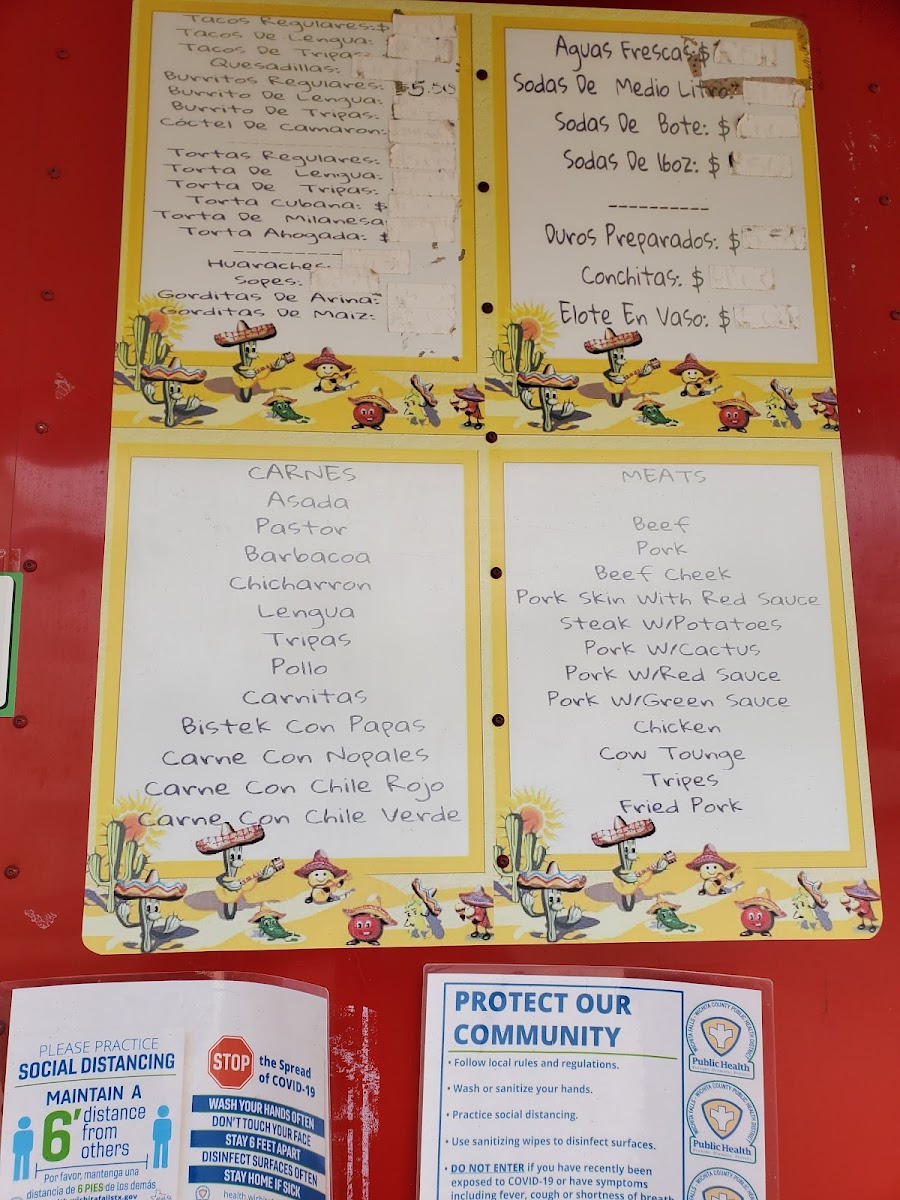 Tacos Regulares:$
Tacos De Lengua:
Tacos De Tripas:
Quesadillas:
Burritos Regulares: $5.50
Burrito De Lengua:
Burrito De Tripas:
Cóctel De Camaron:
Tortas Regulares:
Torta De Lengua:
Torta De Tripas:
Torta Cubana: $
Torta De Milanesa
Torta Ahogada: $
----------
Huaraches:
Sopes:
Gorditas De Arina:
Gorditas De Maiz:
Aguas Frescas:$
Sodas De Medio Litro:
Sodas De Bote: $
Sodas De 16oz: $
----------
Duros Preparados: $
Conchitas: $
Elote En Vaso: $
CARNES
Asada
Pastor
Barbacoa
Chicharron
Lengua
Tripas
Pollo
Carnitas
Bistek Con Papas
Carne Con Nopales
Carne Con Chile Rojo
Carne Con Chile Verde
MEATS
Beef
Pork
Beef Cheek
Pork Skin With Red Sauce
Steak W/Potatoes
Pork W/Cactus
Pork W/Red Sauce
Pork W/Green Sauce
Chicken
Cow Tounge
Tripes
Fried Pork
PLEASE PRACTICE
SOCIAL DISTANCING
MAINTAIN A
6' distance
from
others
Por favor, mantenga una
distancia de 6 PIES de los demás
STOP
the Spread
of COVID-19
WASH YOUR HANDS OFTEN
DON'T TOUCH YOUR FACE
STAY 6 FEET APART
DISINFECT SURFACES OFTEN
STAY HOME IF SICK
PROTECT OUR
COMMUNITY
• Follow local rules and regulations.
• Wash or sanitize your hands.
• Practice social distancing.
• Use sanitizing wipes to disinfect surfaces.
• DO NOT ENTER if you have recently been
exposed to COVID-19 or have symptoms
including fever, cough or shortness of breath
WICHITA FALLS-WICHITA COUNTY PUBLIC HEALTH DISTRICT
Public Health
WICHITA FALLS-WICHITA COUNTY PUBLIC HEALTH DISTRICT
Public Health